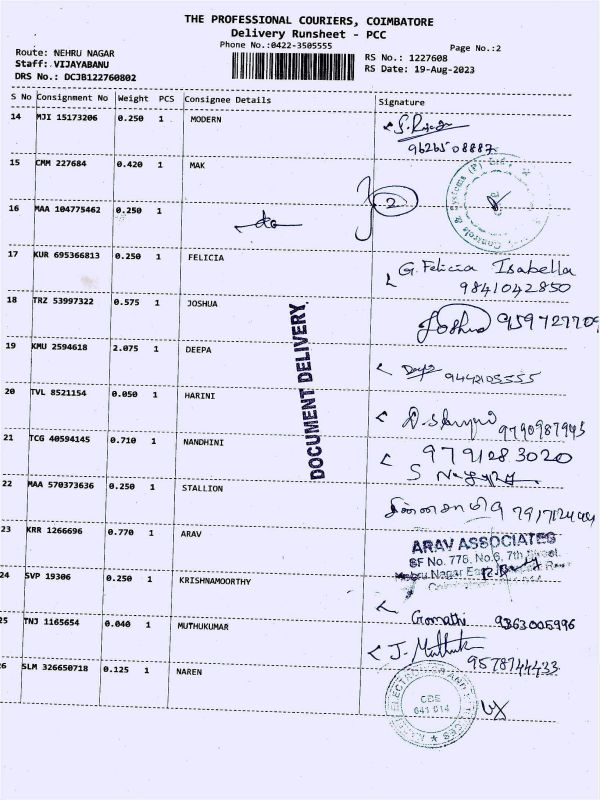 THE PROFESSIONAL COURIERS, COIMBATORE
Delivery Runsheet - PCC
Phone No.:0422-3505555
Page No.:2
Route: NEHRU NAGAR
RS No.: 1227608
Staff: VIJAYABANU
RS Date: 19-Aug-2023
DRS No.: DCJB122760802
S No Consignment No Weight PCS Consignee Details Signature
14 MJI 15173206 0.250 1 MODERN
9626508887
15 CMM 227684 0.420 1 MAK
2
16 MAA 104775462 0.250 1
17 KUR 695366813 0.250 1 FELICIA G. Felicia Isabella
9841042850
18 TRZ 53997322 0.575 1 JOSHUA Joshua
19 KMU 2594618 2.075 1 DEEPA
9442105555
20 TVL 8521154 0.050 1 HARINI
9790987945
21 TCG 40594145 0.710 1 NANDHINI 9791283020
22 MAA 570373636 0.250 1 STALLION
23 KRR 1266696 0.770 1 ARAV
ARAV ASSOCIATES
SF No. 778, No.6, 7th Street,
24 SVP 19306 0.250 1 KRISHNAMOORTHY
Gomathi 9363005996
25 TNJ 1165654 0.040 1 MUTHUKUMAR J. Muthuk
9578744433
26 SLM 326650718 0.125 1 NAREN
CBE
641 014
DOCUMENT DELIVERY